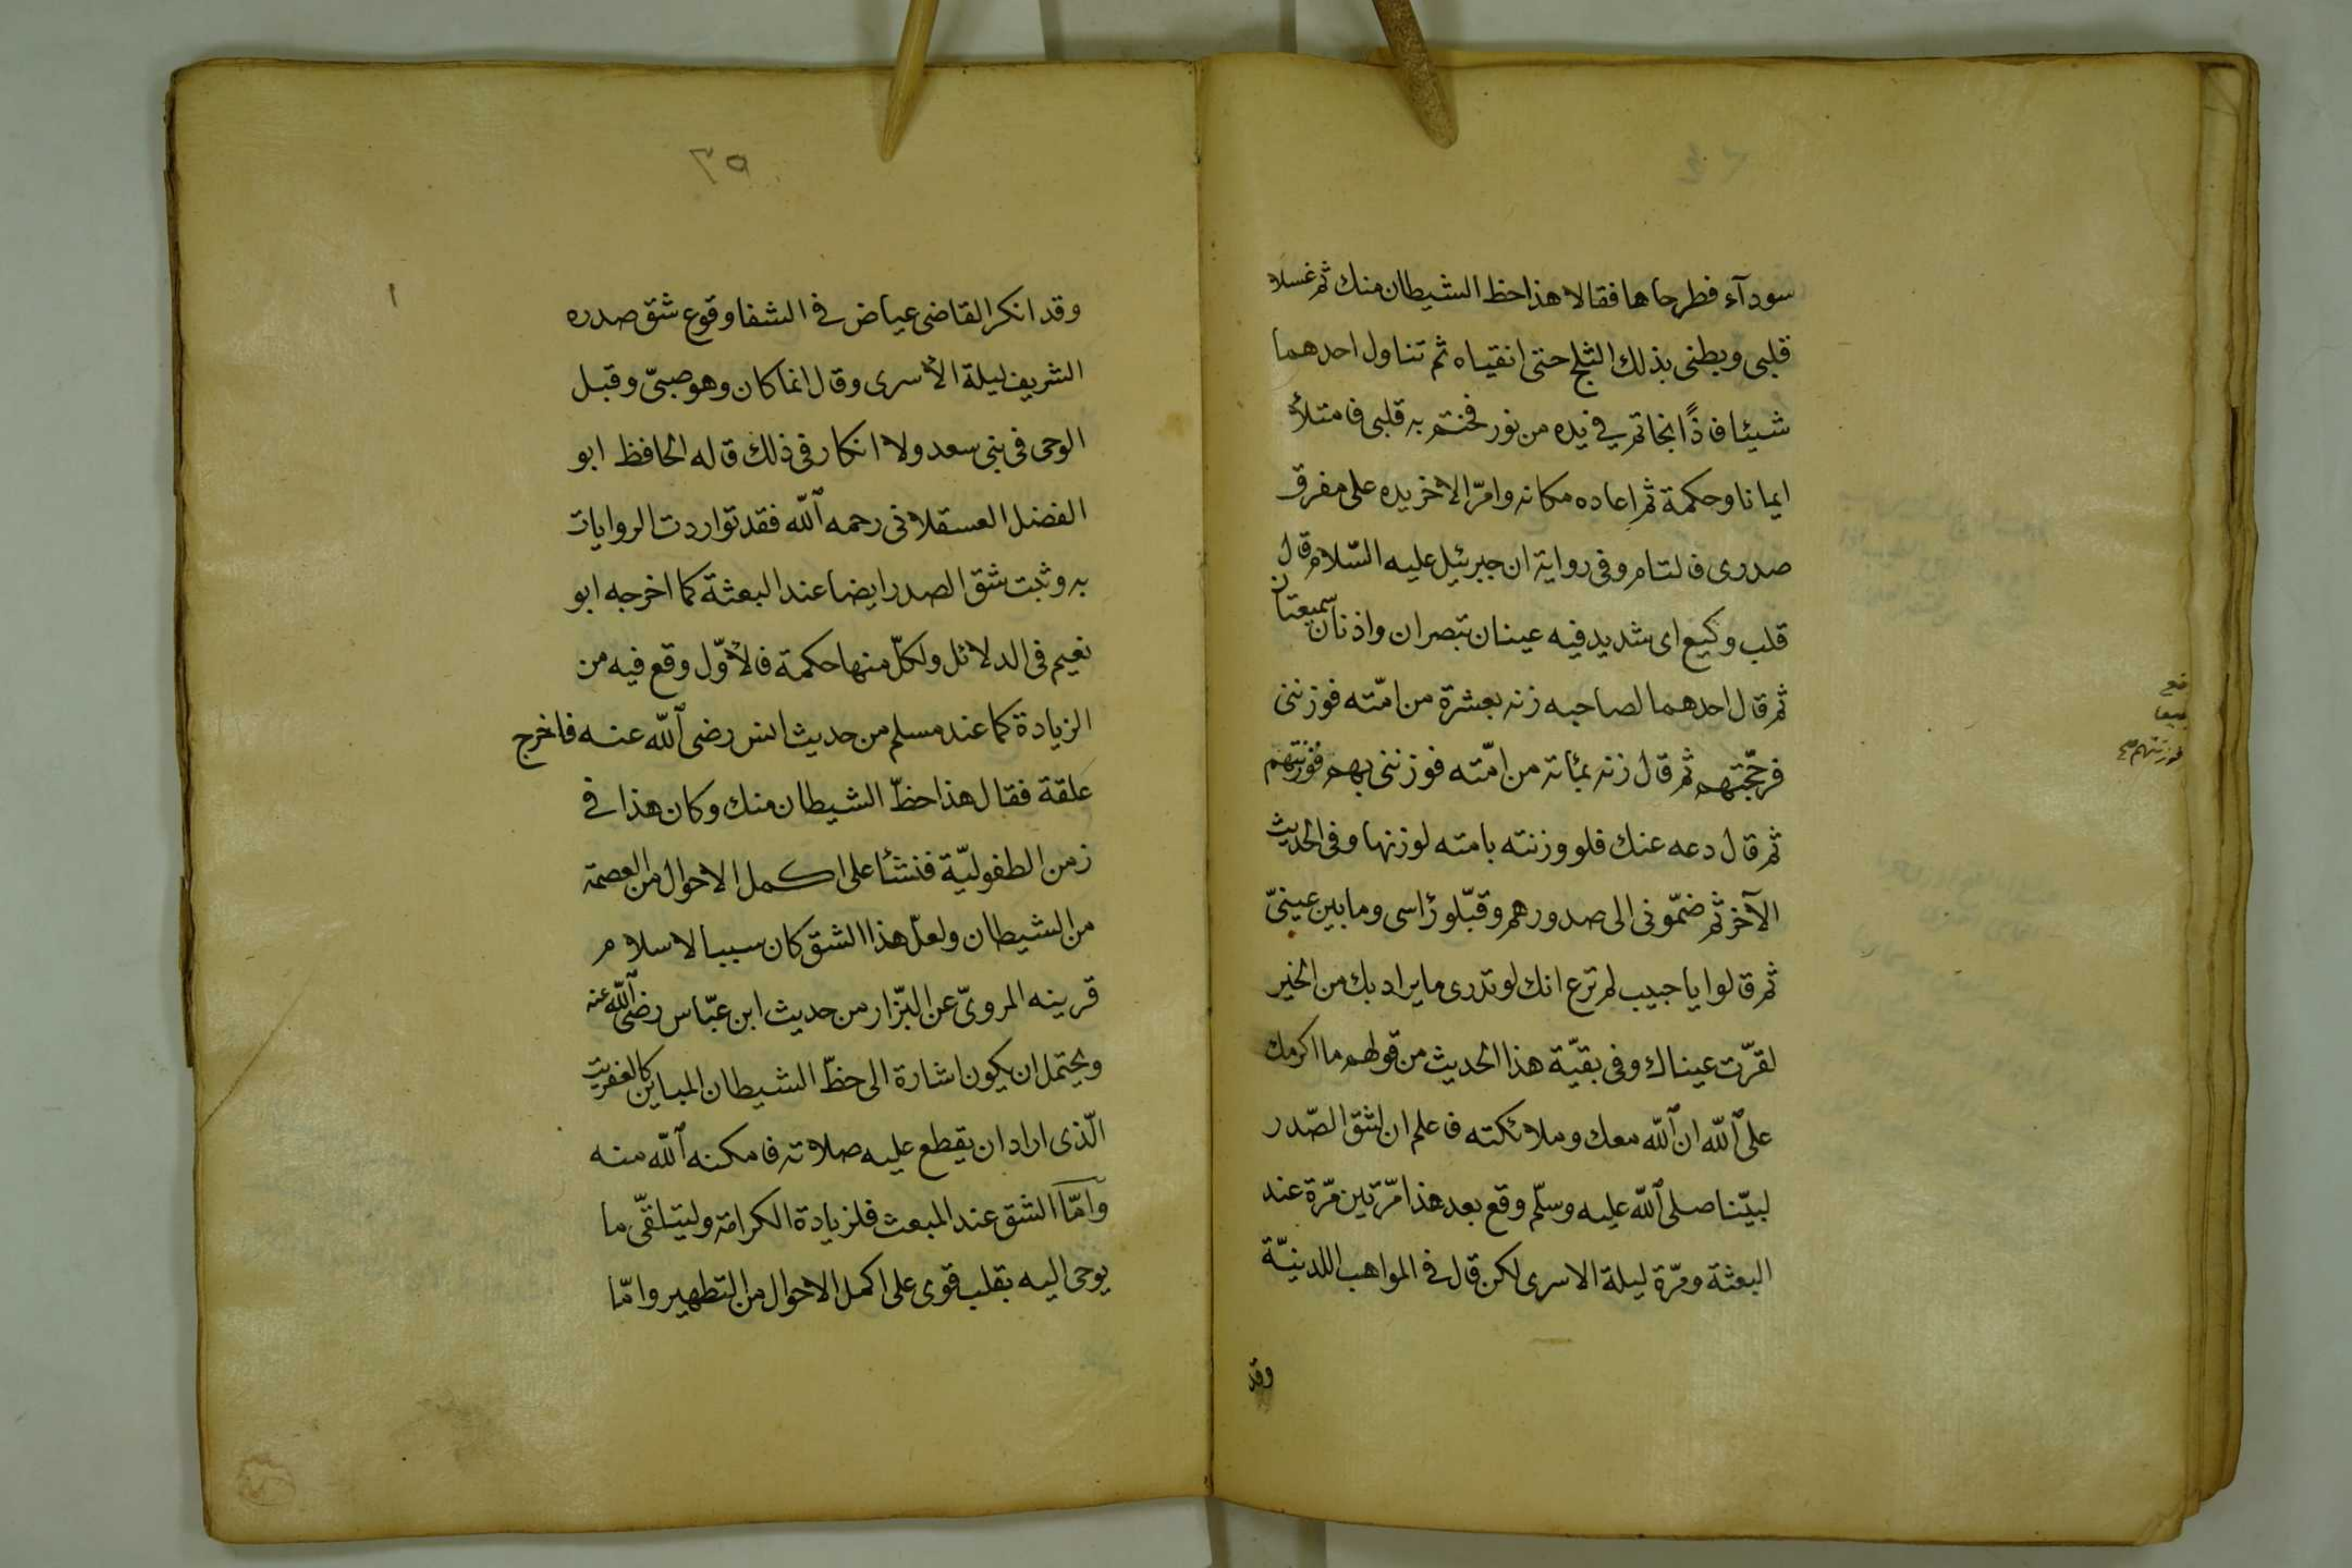 سودآء فطرحاها فقالا هذا حظ الشيطان منك ثم غسلا
قلبى وبطنى بذلك الثلج حتى انقياه ثم تناول احدهما
شيئا فاذًا بخاتم في يده من نور فختم به قلبى فامتلأ
ايمانا وحكمة ثم اعاده مكانه وامرّ الاخر يده على مفرق
صدرى فالتام وفى رواية ان جبرئيل عليه السّلام قال
قلب وكيع اى شديد فيه عينان تبصران واذنان سميعتان
ثم قال احدهما لصاحبه زنه بعشرة من امّته فوزننى
فرجّحتهم ثم قال زنه بمائة من امّته فوزننى بهم فوزنتهم
ثم قال دعه عنك فلو وزنته بامته لوزنها وفى الحديث
الآخر ثم ضمّونى الى صدورهم وقبّلو رأسى وما بين عينىّ
ثم قالوا يا حبيب لم ترع انك لو تدرى ما يراد بك من الخير
لقرّت عيناك وفى بقيّة هذا الحديث من قولهم ما اكرمك
على ٱللّه ان ٱللّه معك وملائكته فاعلم ان شق الصّدر
لبيّنا صلى ٱللّه عليه وسلّم وقع بعد هذا مرّتين مرّة عند
البعثة ومرّة ليلة الاسرى لكن قال في المواهب اللدنيّة
وقد
فوزنتهم
٣٥
١
وقد انكر القاضى عياض في الشفا وقوع شق صدره
الشريف ليلة الأسرى وقال انما كان وهو صبىّ وقبل
الوحى فى بنى سعد ولا انكار فى ذلك قاله الحافظ ابو
الفضل العسقلانى رحمه ٱللّه فقد تواردت الروايات
به وثبت شق الصدر ايضا عند البعثة كما اخرجه ابو
نعيم فى الدلائل ولكلّ منها حكمة فالأوّل وقع فيه من
الزيادة كما عند مسلم من حديث انس رضى ٱللّه عنه فاخرج
علقة فقال هذا حظّ الشيطان منك وكان هذا في
زمن الطفوليّة فنشأ على اكمل الاحوال من العصمة
من الشيطان ولعلّ هذا الشق كان سببا لاسلام
قرينه المروىّ عن البزّار من حديث ابن عبّاس رضى ٱللّه عنه
ويحتمل ان يكون اشارة الى حظّ الشيطان المباين كالعفريت
الّذى اراد ان يقطع عليه صلاته فامكنه ٱللّه منه
وامّا الشق عند المبعث فلزيادة الكرامة وليتلقّى ما
يوحى اليه بقلب قوى على اكمل الاحوال من التطهير وامّا